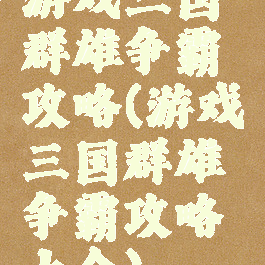 游戏三国
群雄争霸
攻略(游戏
三国群雄
争霸攻略
大全)